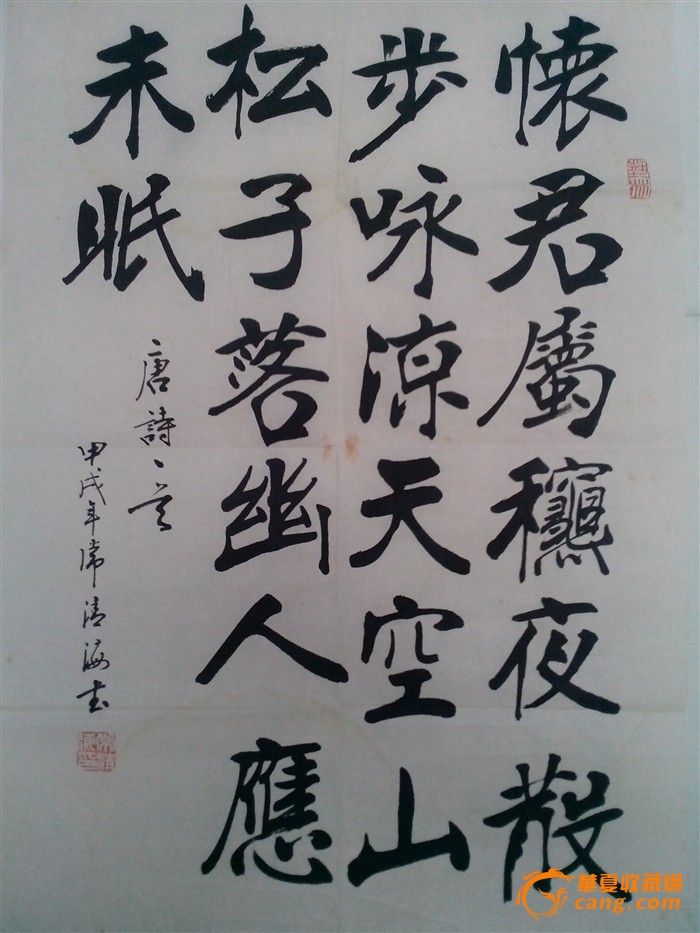 懐君屬龝夜散
步咏涼天空山
松子落幽人應
未眠
唐詩一首
甲戌年常清海书
華夏收藏網
cang.com